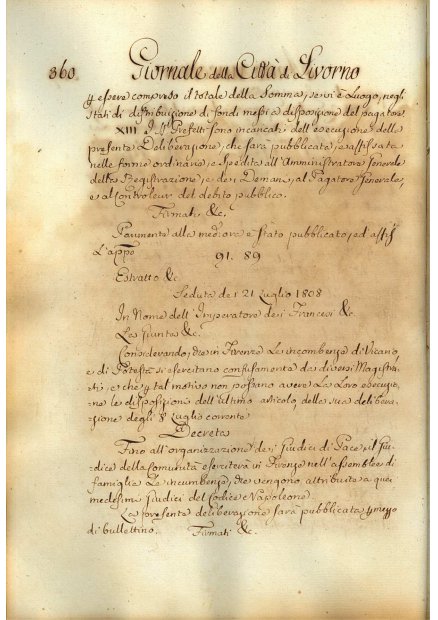 360. Giornale della Città di Livorno
p essere compreso il totale della Somma, se vi è Luogo, negli
Stati di distribuzione di fondi messi a disposizione del pagatore
XIII I SS.ri Prefetti sono incaricati dell'esecuzione della
presente Deliberazione, che sarà pubblicata, e affissata
nelle forme ordinarie, e Spedita all'Amministratore Generale
della Registrazione, e dei Demanj, al Pagatore Generale,
e al Controleur del debito pubblico.
Firmati &c.
Parimente alla med.ora è stato pubblicato, ed affis
L'appo 91. 89
Estratto &c.
Seduta de i 21 Luglio 1808
In Nome dell'Imperatore dei Francesi &c.
La Giunta &c.
Considerando, che in Firenze Le incombenze di Vicario,
e di Potestà si esercitano confusamente da diversi Magistra
ti, e che p tal motivo non possano avere La Loro esecuzio
ne le disposizioni dell'ultimo articolo della sua delibera
zione degli 8 Luglio corrente
Decreta
Fino all'organizazione dei Giudici di Pace, il Giu
dice della Comunità eserciterà in Firenze nell'assemblee di
famiglia Le incumbenze, che vengono attribuite a quei
medesimi Giudici del Codice Napoleone.
La presente deliberazione sarà pubblicata p mezzo
di bullettino. Firmati &c.